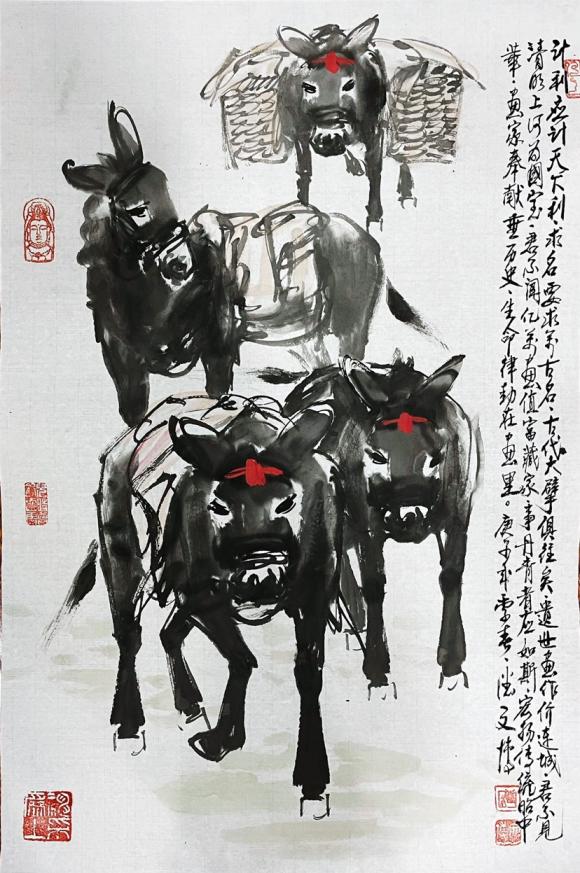 计利应计天下利·求名要求万古名·古代大擘俱往矣·遗世画作价连城·君不见
清明上河为国宝·君不闻亿万画值富藏家·事丹青者应如斯·宏扬传统昭中
华·画家奉献垂历史·生命律动在画里。庚子年 春·